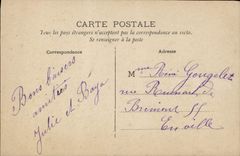 CARTE POSTALE
Tous les pays étrangers n'acceptent pas la correspondance au recto.
Se renseigner à la poste
Correspondance
Adresse
Bons baisers
amitiés
Julie et
Mme Gougelet
rue
55
En ville